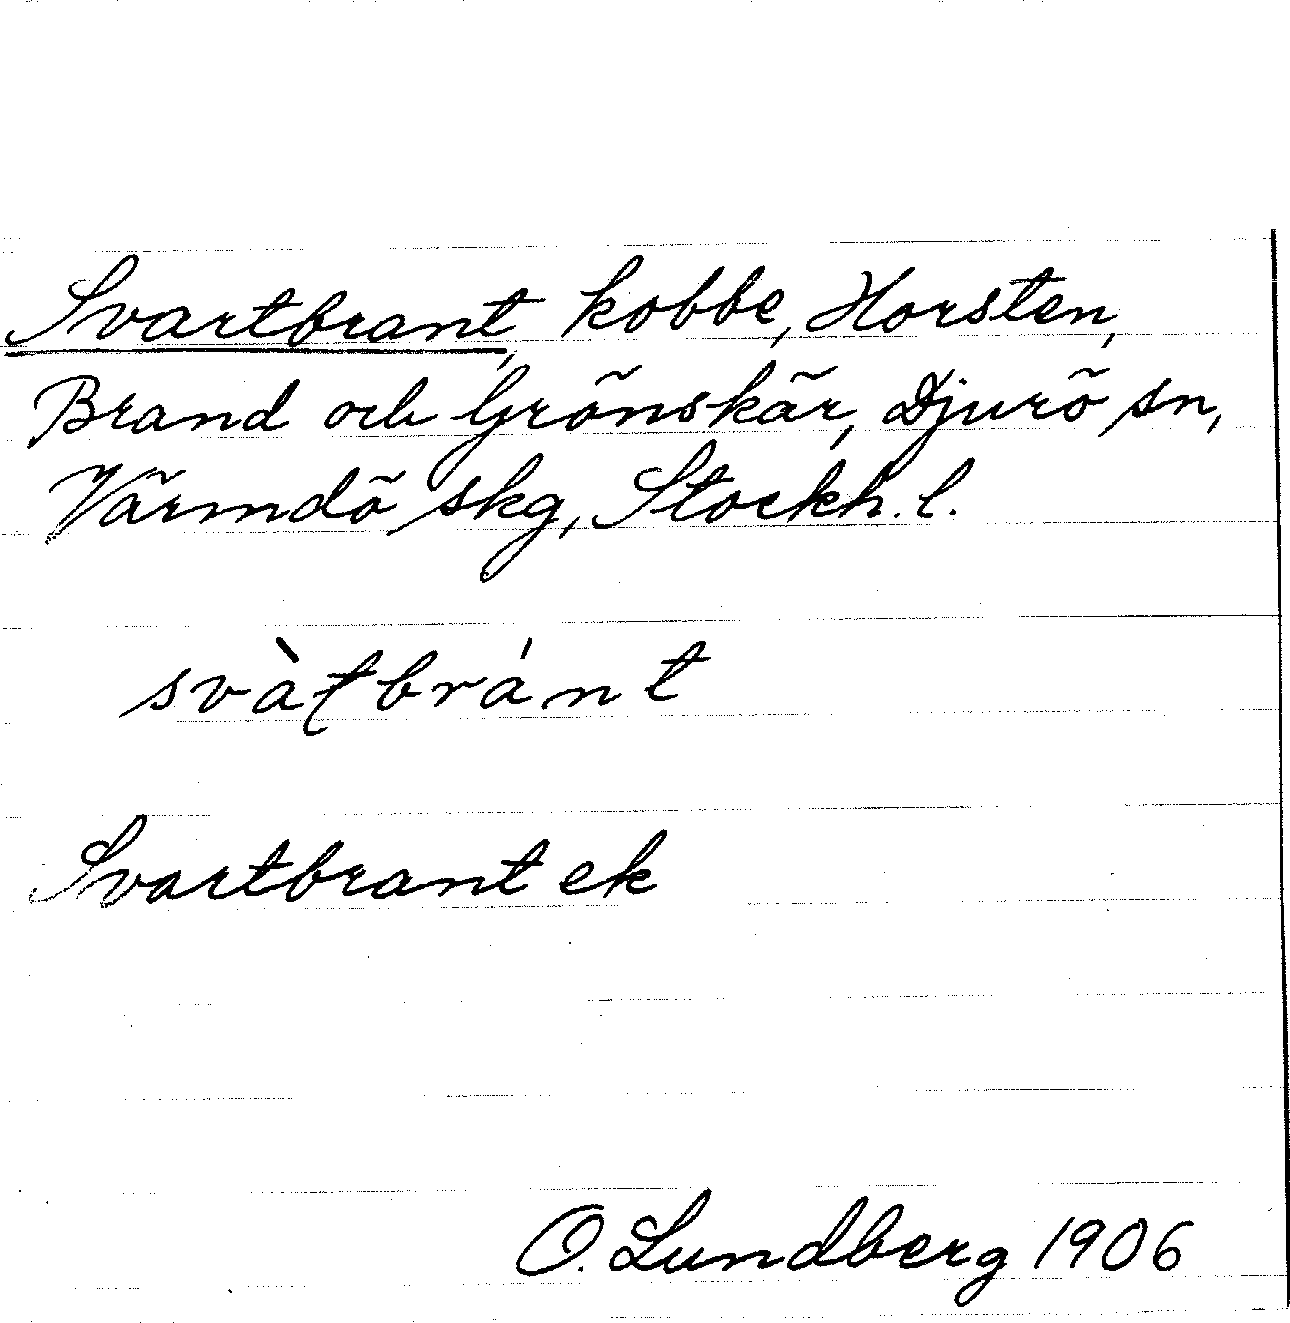 Svartbrant, kobbe, Horsten,
Brand och Grönskär, Djurö sn,
Värmdö skg, Stockh. l.
svàƫbránt
Svartbrant ek
O. Lundberg 1906